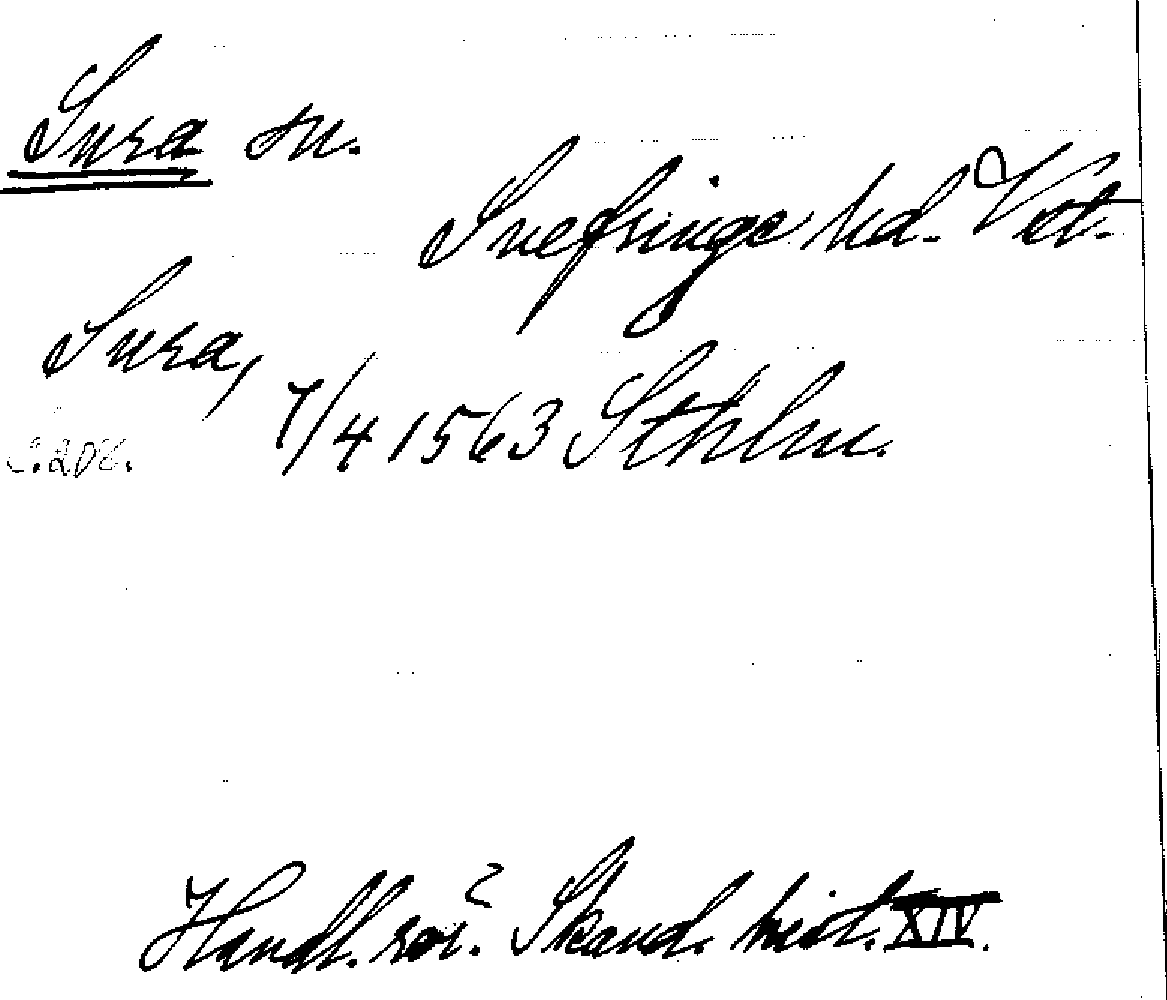 Sura sn.
Snefringe hd. Vst.
Sura,
7/4 1563 Sthlm.
Handl. rör. Skand. hist. XIV.